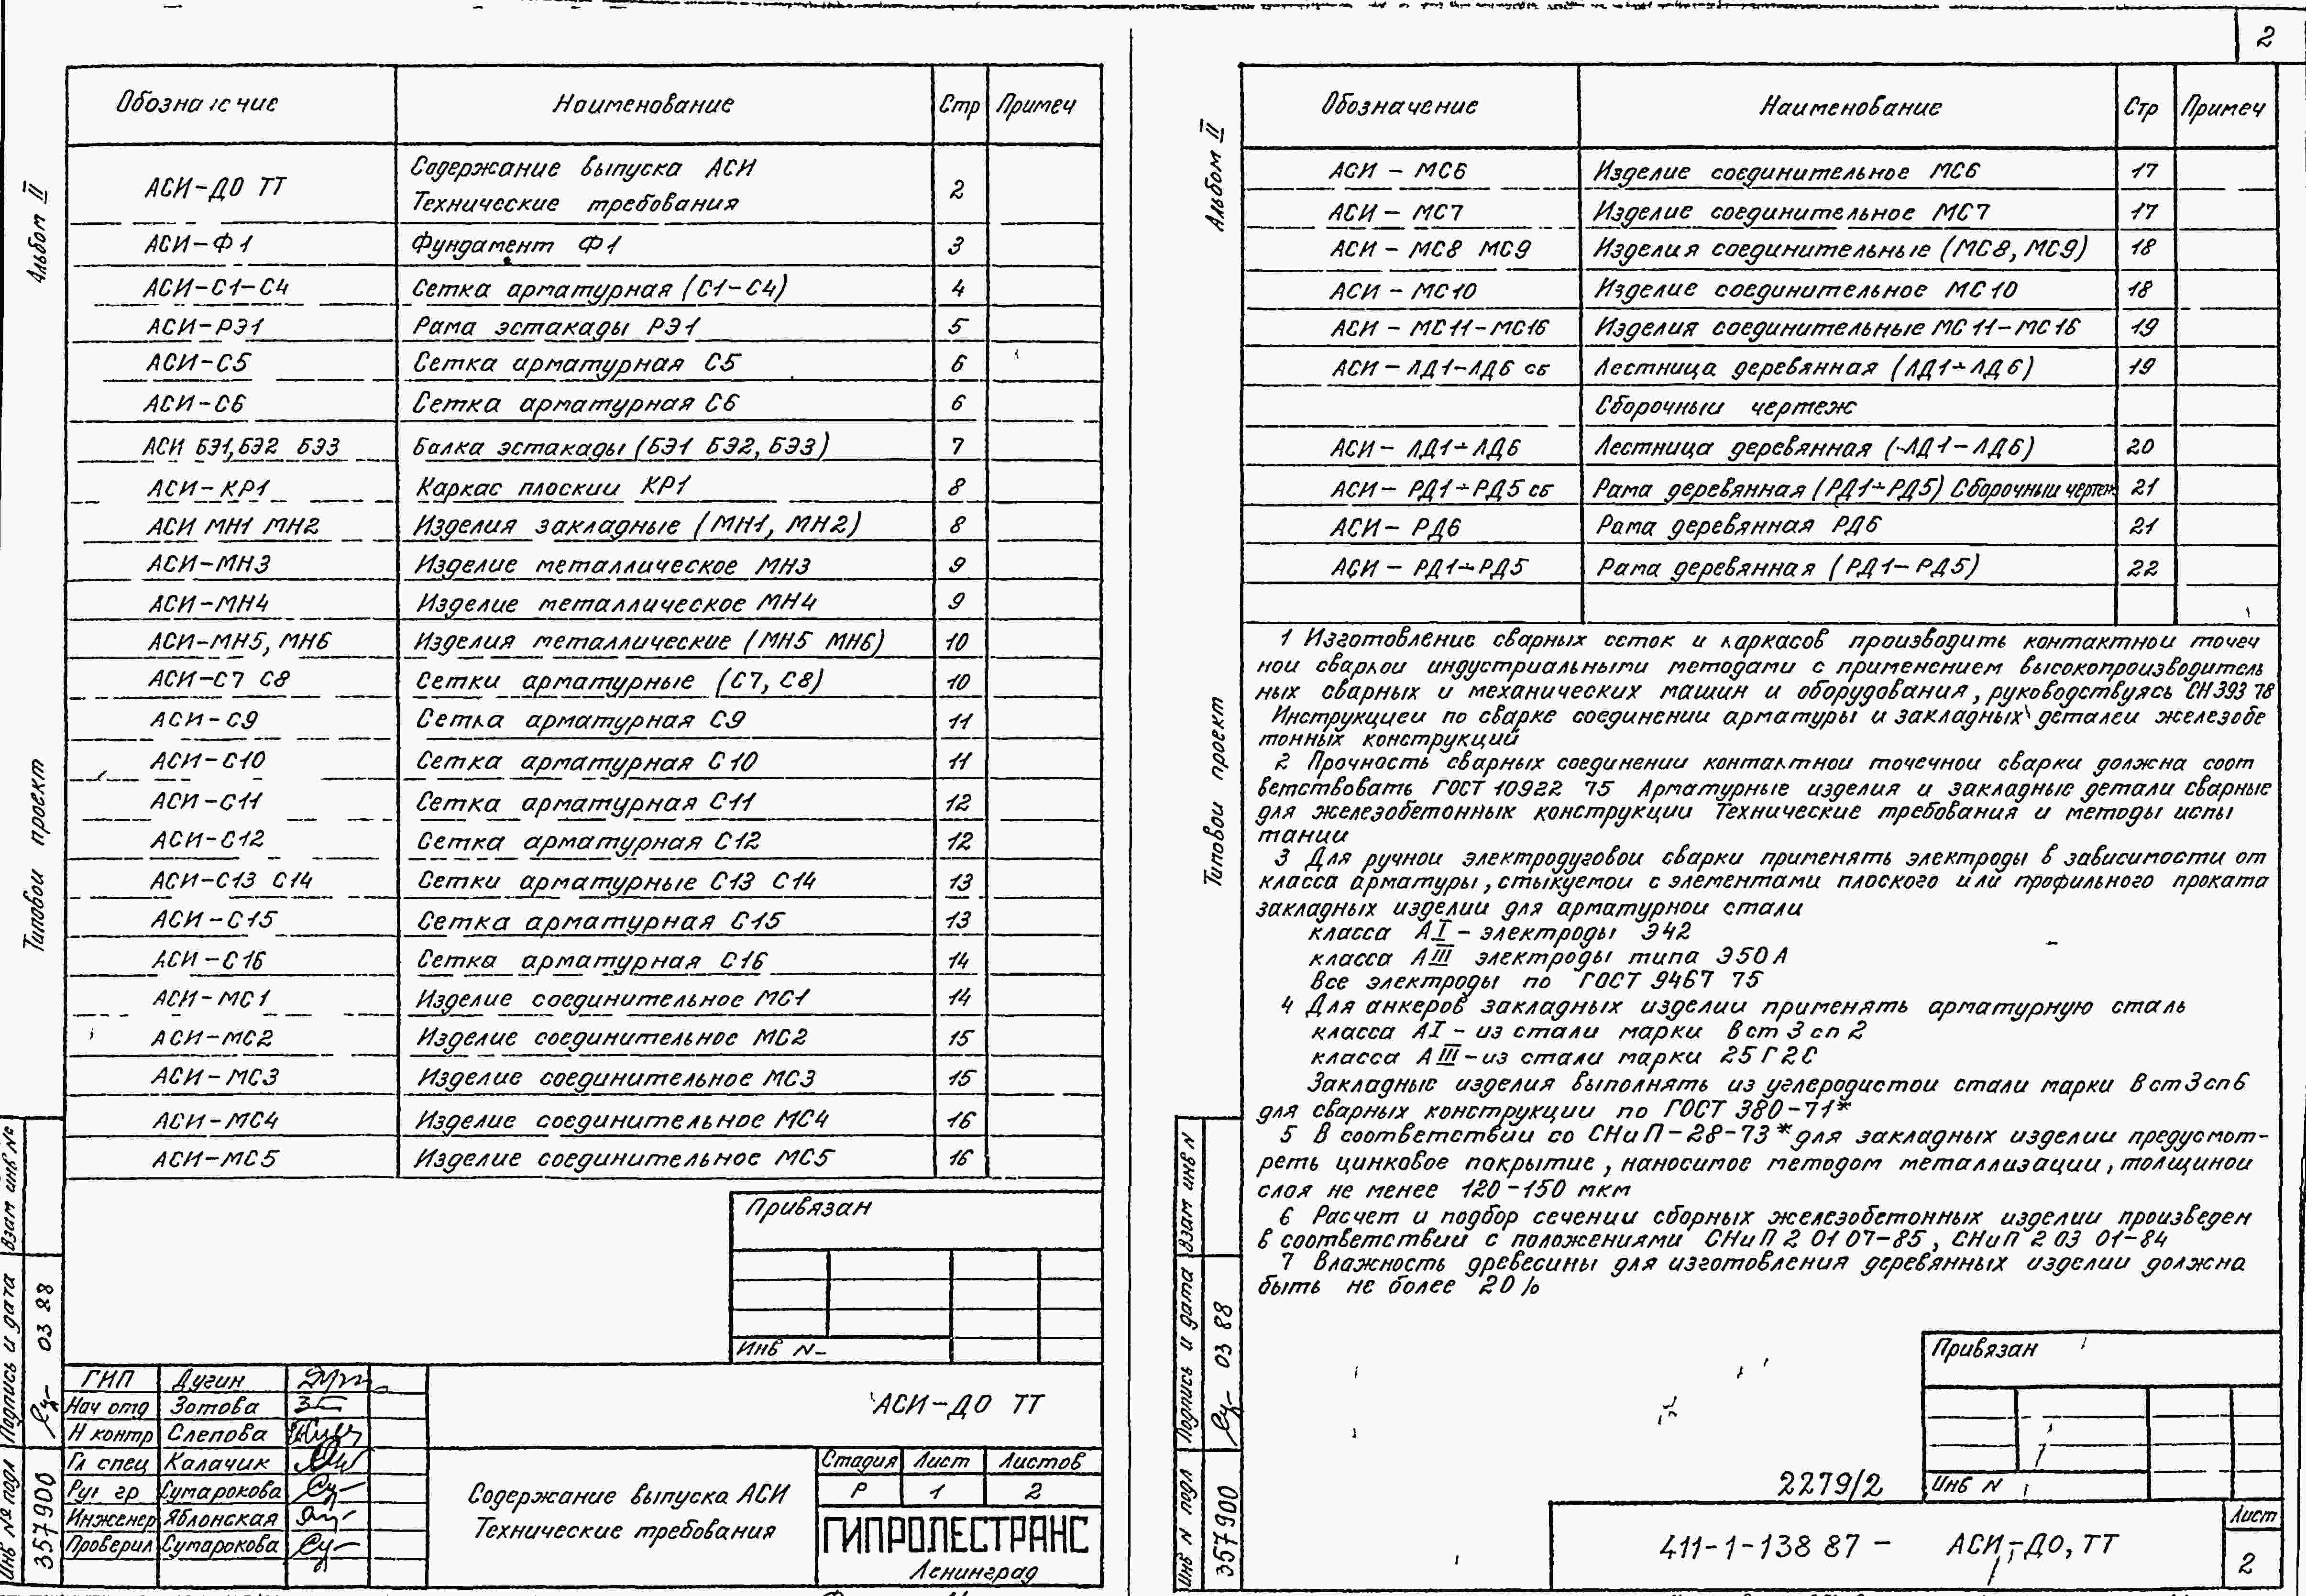 2
Обозначение Наименование Стр Примеч
АСИ-ДО ТТ Содержание выпуска АСИ
Технические требования 2
АСИ-Ф1 Фундамент Ф1 3
АСИ-С1-С4 Сетка арматурная (С1-С4) 4
АСИ-РЭ1 Рама эстакады РЭ1 5
АСИ-С5 Сетка арматурная С5 6
АСИ-С6 Сетка арматурная С6 6
АСИ БЭ1, БЭ2 БЭ3 Балка эстакады (БЭ1 БЭ2, БЭ3) 7
АСИ-КР1 Каркас плоскии КР1 8
АСИ МН1 МН2 Изделия закладные (МН1, МН2) 8
АСИ-МН3 Изделие металлическое МН3 9
АСИ-МН4 Изделие металлическое МН4 9
АСИ-МН5, МН6 Изделия металлические (МН5 МН6) 10
АСИ-С7 С8 Сетки арматурные (С7, С8) 10
АСИ-С9 Сетка арматурная С9 11
АСИ-С10 Сетка арматурная С10 11
АСИ-С11 Сетка арматурная С11 12
АСИ-С12 Сетка арматурная С12 12
АСИ-С13 С14 Сетки арматурные С13 С14 13
АСИ-С15 Сетка арматурная С15 13
АСИ-С16 Сетка арматурная С16 14
АСИ-МС1 Изделие соединительное МС1 14
АСИ-МС2 Изделие соединительное МС2 15
АСИ-МС3 Изделие соединительное МС3 15
АСИ-МС4 Изделие соединительное МС4 16
АСИ-МС5 Изделие соединительное МС5 16
Альбом II
Типовои проект
Взам инв №
Подпись и дата
03 88
Инв № подл
357900
Привязан
Инв N-
ГИП Дугин
Нач отд Зотова
Н контр Слепова
Гл спец Калачик
Рук гр Сумарокова
Инженер Яблонская
Проверил Сумарокова
АСИ-ДО ТТ
Содержание выпуска АСИ
Технические требования
Стадия Лист Листов
Р 1 2
ГИПРОЛЕСТРАНС
Ленинград
Обозначение Наименование Стр Примеч
АСИ - МС6 Изделие соединительное МС6 17
АСИ - МС7 Изделие соединительное МС7 17
АСИ - МС8 МС9 Изделия соединительные (МС8, МС9) 18
АСИ - МС10 Изделие соединительное МС10 18
АСИ - МС11-МС16 Изделия соединительные МС11-МС16 19
АСИ - ЛД1-ЛД6 сб Лестница деревянная (ЛД1÷ЛД6) 19
Сборочныи чертеж
АСИ - ЛД1÷ЛД6 Лестница деревянная (ЛД1-ЛД6) 20
АСИ - РД1÷РД5 сб Рама деревянная (РД1÷РД5) Сборочныи чертеж 21
АСИ - РД6 Рама деревянная РД6 21
АСИ - РД1÷РД5 Рама деревянная (РД1-РД5) 22
1 Изготовление сварных сеток и каркасов производить контактнои точеч
нои сваркои индустриальными методами с применением высокопроизводитель
ных сварных и механических машин и оборудования, руководствуясь СН 393 78
Инструкциеи по сварке соединении арматуры и закладных деталеи железобе
тонных конструкций
2 Прочность сварных соединении контактнои точечнои сварки должна соот
ветствовать ГОСТ 10922 75 Арматурные изделия и закладные детали сварные
для железобетонных конструкции Технические требования и методы испы
тании
3 Для ручнои электродуговои сварки применять электроды в зависимости от
класса арматуры, стыкуемои с элементами плоского или профильного проката
закладных изделии для арматурнои стали
класса АI - электроды Э42
класса АIII электроды типа Э50А
Все электроды по ГОСТ 9467 75
4 Для анкеров закладных изделии применять арматурную сталь
класса АI - из стали марки Вст 3 сп 2
класса АIII - из стали марки 25Г2С
Закладные изделия выполнять из углеродистои стали марки Вст3сп6
для сварных конструкции по ГОСТ 380-71*
5 В соответствии со СНиП-28-73* для закладных изделии предусмот-
реть цинковое покрытие, наносимое методом металлизации, толщинои
слоя не менее 120-150 мкм
6 Расчет и подбор сечении сборных железобетонных изделии произведен
в соответствии с положениями СНиП 2 01 07-85, СНиП 2 03 01-84
7 Влажность древесины для изготовления деревянных изделии должна
быть не более 20%
Альбом II
Типовои проект
Взам инв N
Подпись и дата
03 88
Инв N подл
357900
Привязан
Инв N
2279/2
411-1-138 87 - АСИ-ДО, ТТ
Лист
2